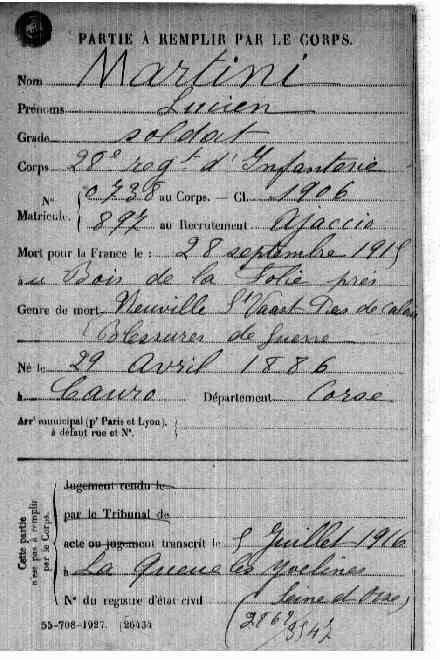 PARTIE À REMPLIR PAR LE CORPS.
Nom Martini
Prénoms Lucien
Grade soldat
Corps 28e regt d'Infanterie
N° Matricule. { 0738 au Corps. — Cl. 1906
897 au Recrutement Ajaccio
Mort pour la France le : 28 septembre 1915
au Bois de la Folie près
Genre de mort Neuville St Vaast Pas de Calais
Blessures de Guerre
Né le 29 Avril 1886
à Cauro Département Corse
Arrt municipal (pr Paris et Lyon),
à défaut rue et N°.
Cette partie n'est pas à remplir par le Corps.
Jugement rendu le
par le Tribunal de
acte ou jugement transcrit le 5 Juillet 1916
à La Queue les Yvelines
N° du registre d'état civil Seine et Oise
55-708-1927. [26434
2869/3547